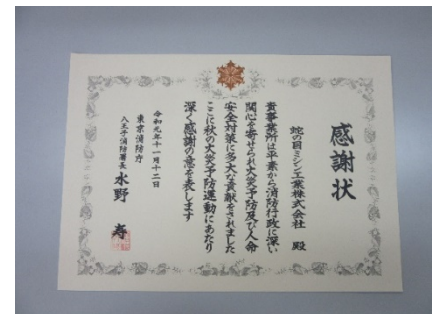 感謝状
蛇の目ミシン工業株式会社 殿
貴事業所は平素から消防行政に深い
関心を寄せられ火災予防及び人命
安全対策に多大な貢献をされました
ここに秋の火災予防運動にあたり
深く感謝の意を表します
令和元年十一月十二日
東京消防庁
八王子消防署長 水野 寿